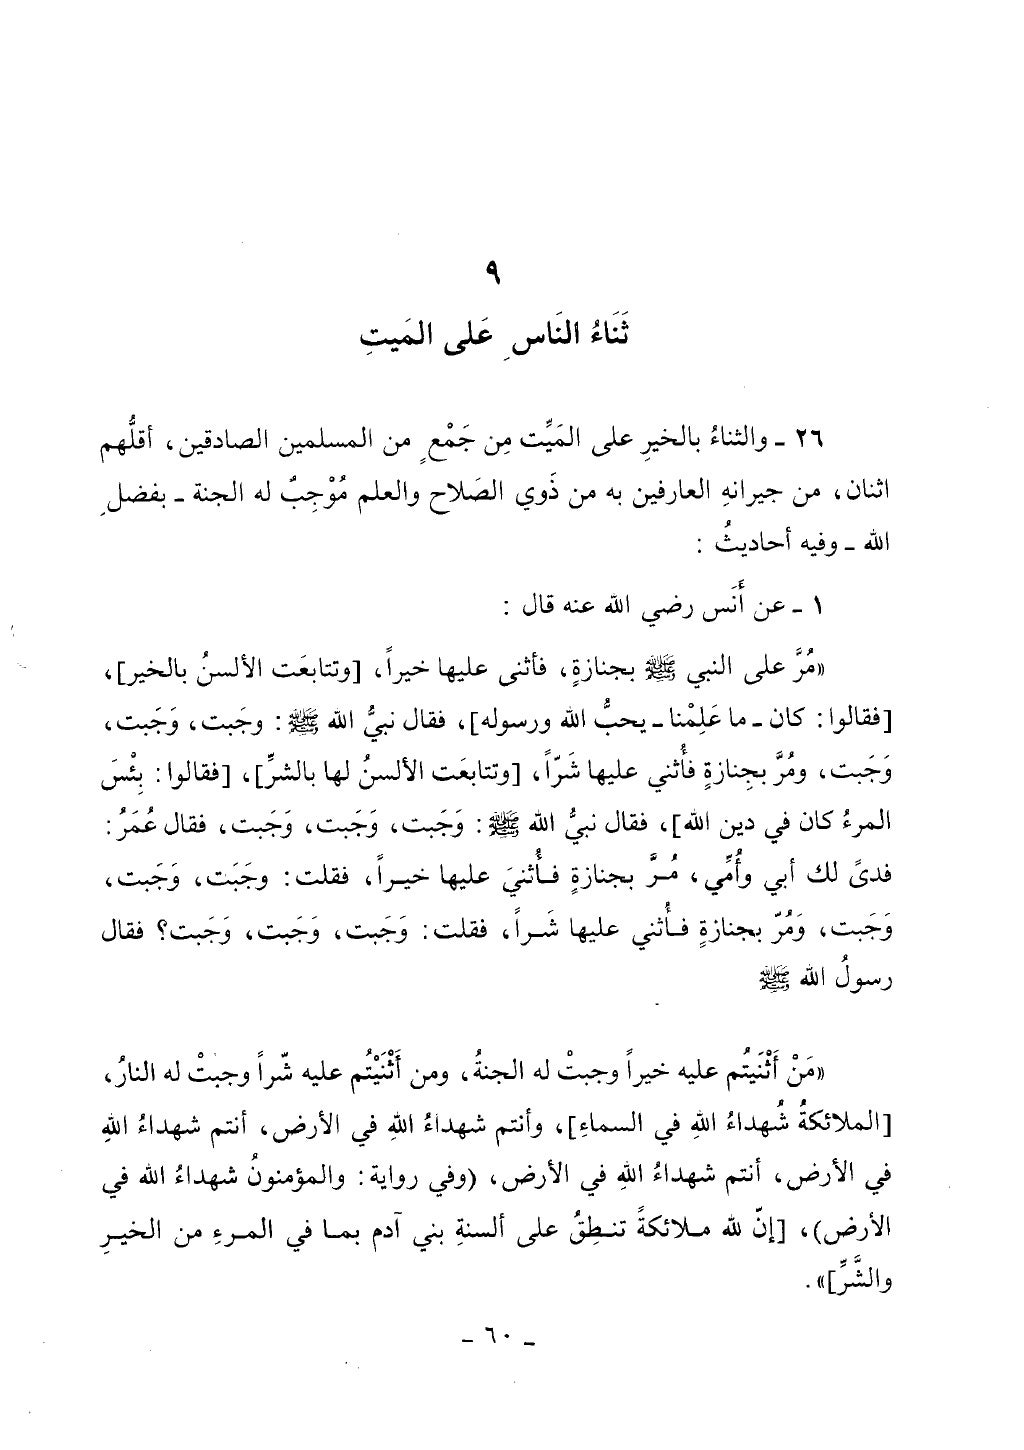 ٩
ثَنَاءُ النَاسِ عَلى المَيتِ
٢٦ ـ والثناءُ بالخيرِ على المَيِّت مِن جَمْعٍ من المسلمين الصادقين، أقلُّهم
اثنان، من جيرانهِ العارفين به من ذَوي الصَلاح والعلم مُوْجِبٌ له الجنة ـ بفضلِ
الله ـ وفيه أحاديثُ :
١ ـ عن أَنَس رضي الله عنه قال :
«مُرَّ على النبي ﷺ بجنازةٍ، فأثنى عليها خيراً، [وتتابعَت الألسنُ بالخير]،
[فقالوا: كان ـ ما عَلِمْنا ـ يحبُّ الله ورسوله]، فقال نبيُّ الله ﷺ: وجَبت، وَجَبت،
وَجَبت، ومُرَّ بجِنازةٍ فأُثني عليها شَرّاً، [وتتابعَت الألسنُ لها بالشرِّ]، [فقالوا: بِئْسَ
المرءُ كان في دين الله]، فقال نبيُّ الله ﷺ: وَجَبت، وَجَبت، وَجَبت، فقال عُمَرُ:
فدىً لك أبي وأُمِّي، مُرَّ بجنازةٍ فأُثنيَ عليها خيراً، فقلت: وجَبَت، وَجَبت،
وَجَبت، وَمُرّ بجنازةٍ فأُثني عليها شَراً، فقلت: وَجَبت، وَجَبت، وَجَبت؟ فقال
رسولُ الله ﷺ
«مَنْ أَثْنَيتُم عليه خيراً وجبتْ له الجنةُ، ومن أَثْنَيْتُم عليه شّراً وجبتْ له النارُ،
[الملائكةُ شُهداءُ اللهِ في السماءِ]، وأنتم شهداءُ اللهِ في الأرض، أنتم شهداءُ اللهِ
في الأرض، أنتم شهداءُ اللهِ في الأرض، (وفي رواية: والمؤمنونُ شهداءُ الله في
الأرض)، [إنّ لله ملائكةً تنطِقُ على ألسنةِ بني آدم بما في المرءِ من الخيرِ
والشَّرِّ]».
ـ ٦٠ ـ